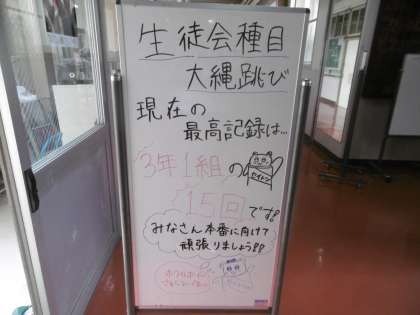 生徒会種目
大縄跳び
現在の
最高記録は…
3年1組の
15回です!
みなさん本番に向けて
頑張りましょう!!